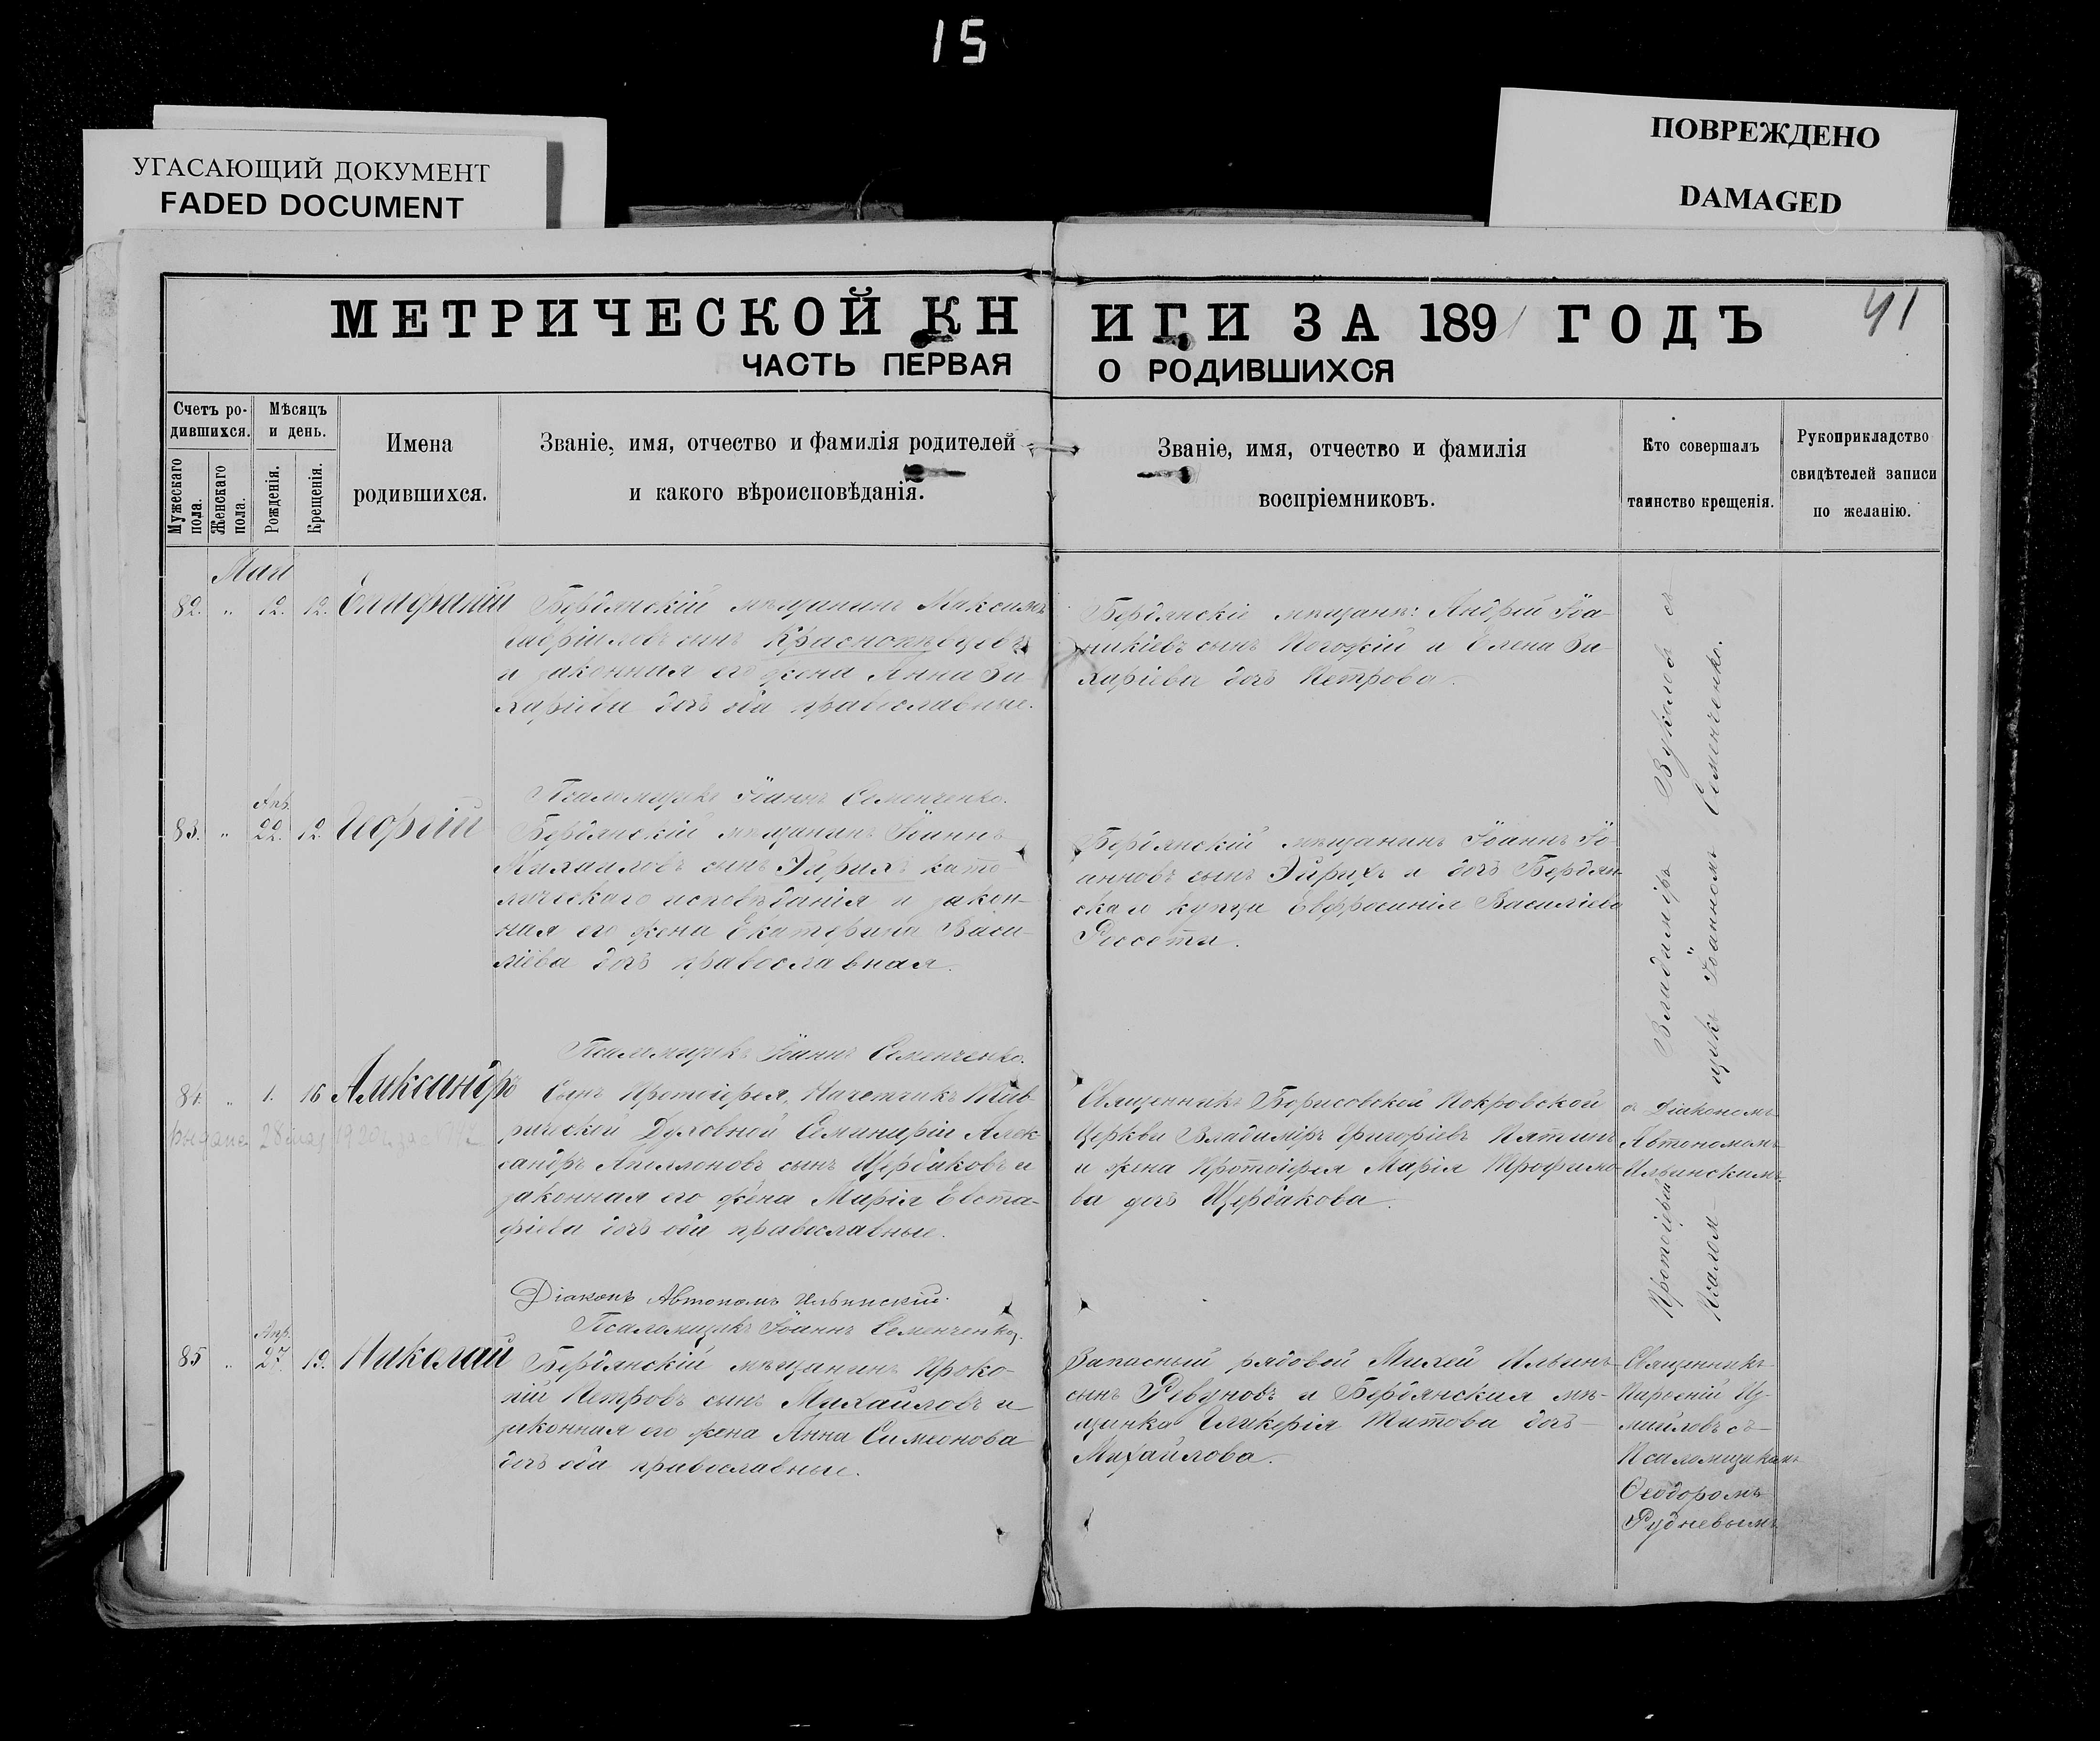 15
УГАСАЮЩИЙ ДОКУМЕНТ
FADED DOCUMENT
ПОВРЕЖДЕНО
DAMAGED
МЕТРИЧЕСКОЙ КНИГИ ЗА 1891 ГОДЪ
41
ЧАСТЬ ПЕРВАЯ О РОДИВШИХСЯ
Счетъ ро-
дившихся.
Мужескаго пола.
Женскаго пола.
Мѣсяцъ
и день.
Рожденія.
Крещенія.
Имена
родившихся.
Званіе, имя, отчество и фамилія родителей
и какого вѣроисповѣданія.
Званіе, имя, отчество и фамилія
воспріемниковъ.
Кто совершалъ
таинство крещенія.
Рукоприкладство
свидѣтелей записи
по желанію.
Мая
82. " 12. 12. Епифаній
Бердянскій мѣщанинъ Максимъ
Гавріиловъ сынъ Краснокѣецевъ
и законная его жена Анна Зи-
ларіева дочь оба православные.
Бердянскіе мѣщане: Андрей Іоа-
никіевъ сынъ Погожій и Елена
ларіева дочь Петрова.
Псаломщикъ Іоаннъ Семенченко.
83. " Апр. 22. 12. Георгій
Бердянскій мѣщанинъ Іоаннъ
Михаиловъ сынъ Эйрихъ като-
лическаго исповѣданія и закон-
ная его жена Екатерина Васи-
ліева дочь православная.
Бердянскій мѣщанинъ Іоаннъ Іо-
анновъ сынъ Эйрихъ и дочь Бердян-
скаго купца Евфросинія Василіева
Россети.
Протоіерей Владиміръ Вукаловъ съ
Псаломщикъ Іоанномъ Семенченко.
Псаломщикъ Іоаннъ Семенченко.
84. " 1. 16 Александръ
28 мая 1920
Сынъ Протоіерея, Начетчикъ Тав-
рической Духовной Семинаріи Алек-
сандръ Аполлоновъ сынъ Щербаковъ и
законная его жена Марія Евста-
фіева дочь оба православные.
Священникъ Борисовской Покровской
Церкви Владиміръ Григоріевъ Пятинъ
и жена Протоіерея Марія Трофимо-
ва дочь Щербакова.
съ Діакономъ
Автономомъ
Ильинскимъ
Діаконъ Автономъ Ильинскій.
Псаломщикъ Іоаннъ Семенченко.
85 " Апр. 27. 19. Николай
Бердянскій мѣщанинъ Проко-
пій Петровъ сынъ Михайловъ и
законная его жена Анна Симеонова
дочь оба православные.
Запасный рядовой Михей Ильинъ
сынъ Ревуновъ и Бердянская мѣ-
щанка Гликерія Титова дочь
Михайлова.
Священникъ
Парѳеній Из-
майловъ съ
Псаломщикомъ
Ѳеодоромъ
Рудневымъ